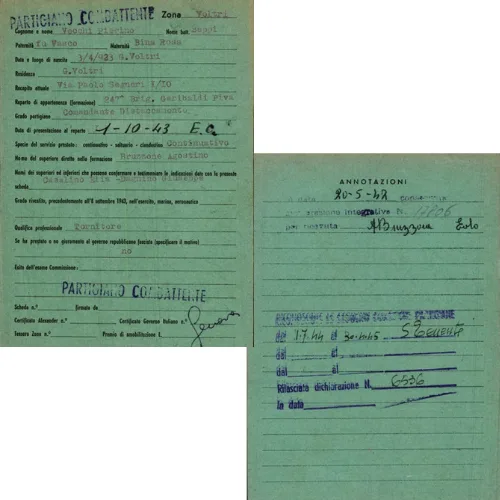 PARTIGIANO COMBATTENTE Zona Voltri
Cognome e nome Vecchi Pierino Nome batt. Beppi
Paternità fu Vasco Maternità Bina Rosa
Data e luogo di nascita 3/4/923 G.Voltri
Residenza G.Voltri
Recapito attuale Via Paolo Gagnari 1/10
Reparto di appartenenza (formazione) 247^ Brig. Garibaldi Piva
Grado partigiano Comandante Distaccamento
Data di presentazione al reparto 1-10-43 E.C.
Specie del servizio prestato: continuativo - saltuario - clandestino Continuativo
Nome del superiore diretto nella formazione Brussone Agostino
Nomi dei superiori ed inferiori che possono confermare e testimoniare le indicazioni date con la presente
scheda Casalino Eria
Grado rivestito, precedentemente all'8 settembre 1943, nell'esercito, marina, aeronautica
Qualifica professionale Tornitore
Se ha prestato o no giuramento al governo repubblicano fascista (specificare il motivo)
no
Esito dell'esame Commissione:
PARTIGIANO COMBATTENTE
Scheda n.° firmata da
Certificato Alexander n.° Certificato Governo Italiano n.°
Tessera Zona n.° Premio di smobilitazione L.
Genova
ANNOTAZIONI
data 20-5-42
integrativa N.
per ricevuta
dal 1.7.44 al 30.4.45 S.Tenente
dal al
dal al
Rilasciata dichiarazione N. 6536
in data